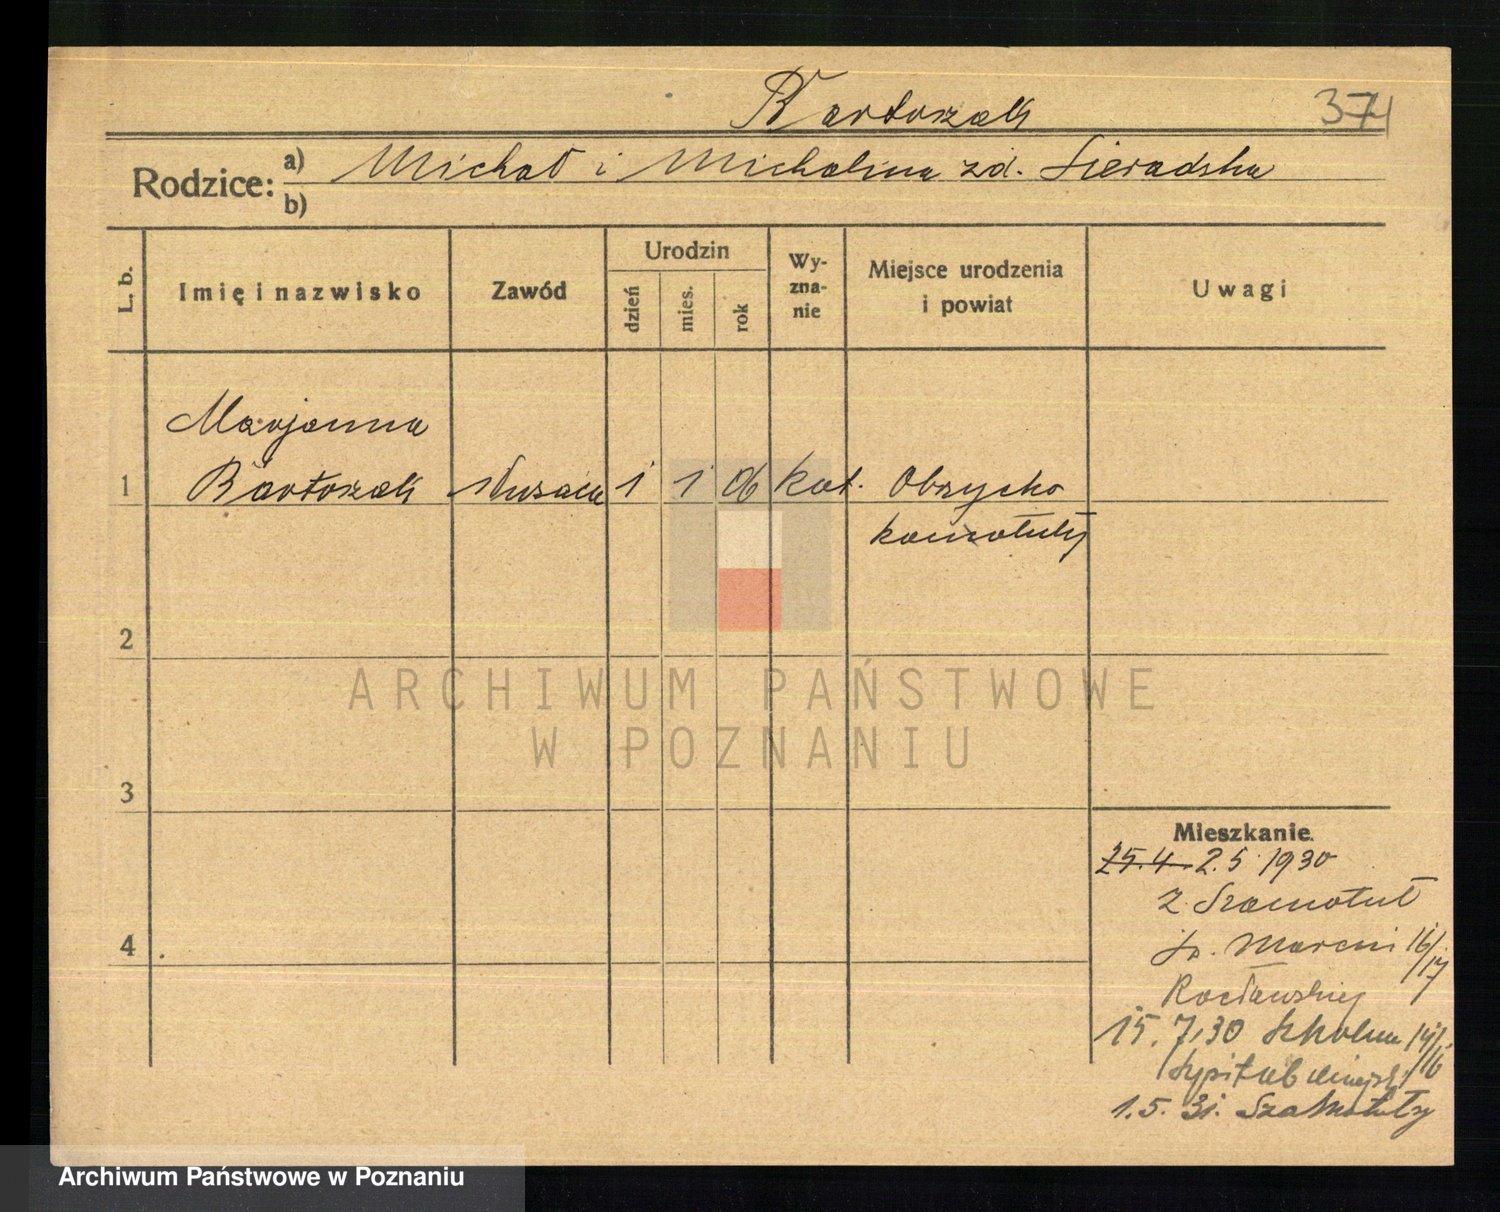 Bartoszak
374
Rodzice: a) Michał i Michalina zd. Sieradzka
b)
L. b.
Imię i nazwisko
Zawód
Urodzin
dzień
mies.
rok
Wy-
zna-
nie
Miejsce urodzenia
i powiat
Uwagi
Marjanna
1 Bartoszak służąca 1 1 06 kat. Obrzycko
2
3
4
Mieszkanie.
25.4 2.5 1930
z Szamotuł
Św. Marcin 16/17
15.7.30 Szkolna 14/16
Szpital miejski
1.5.31. Szamotuły
ARCHIWUM PAŃSTWOWE
W POZNANIU
Archiwum Państwowe w Poznaniu